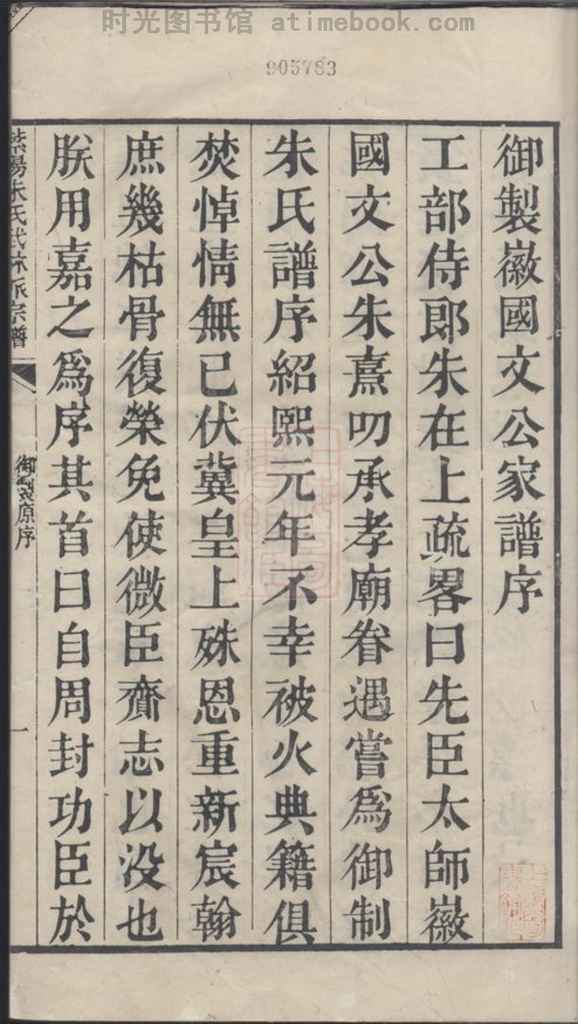 时光图书馆 atimebook.com
905783
御製徽國文公家譜序
工部侍郎朱在上疏畧曰先臣太師徽
國文公朱熹叨承孝廟眷遇嘗爲御制
朱氏譜序紹熙元年不幸被火典籍俱
焚悼情無已伏冀皇上殊恩重新宸翰
庶幾枯骨復榮免使微臣齎志以没也
朕用嘉之爲序其首曰自周封功臣於
紫陽朱氏武林派宗譜
御製原序
一